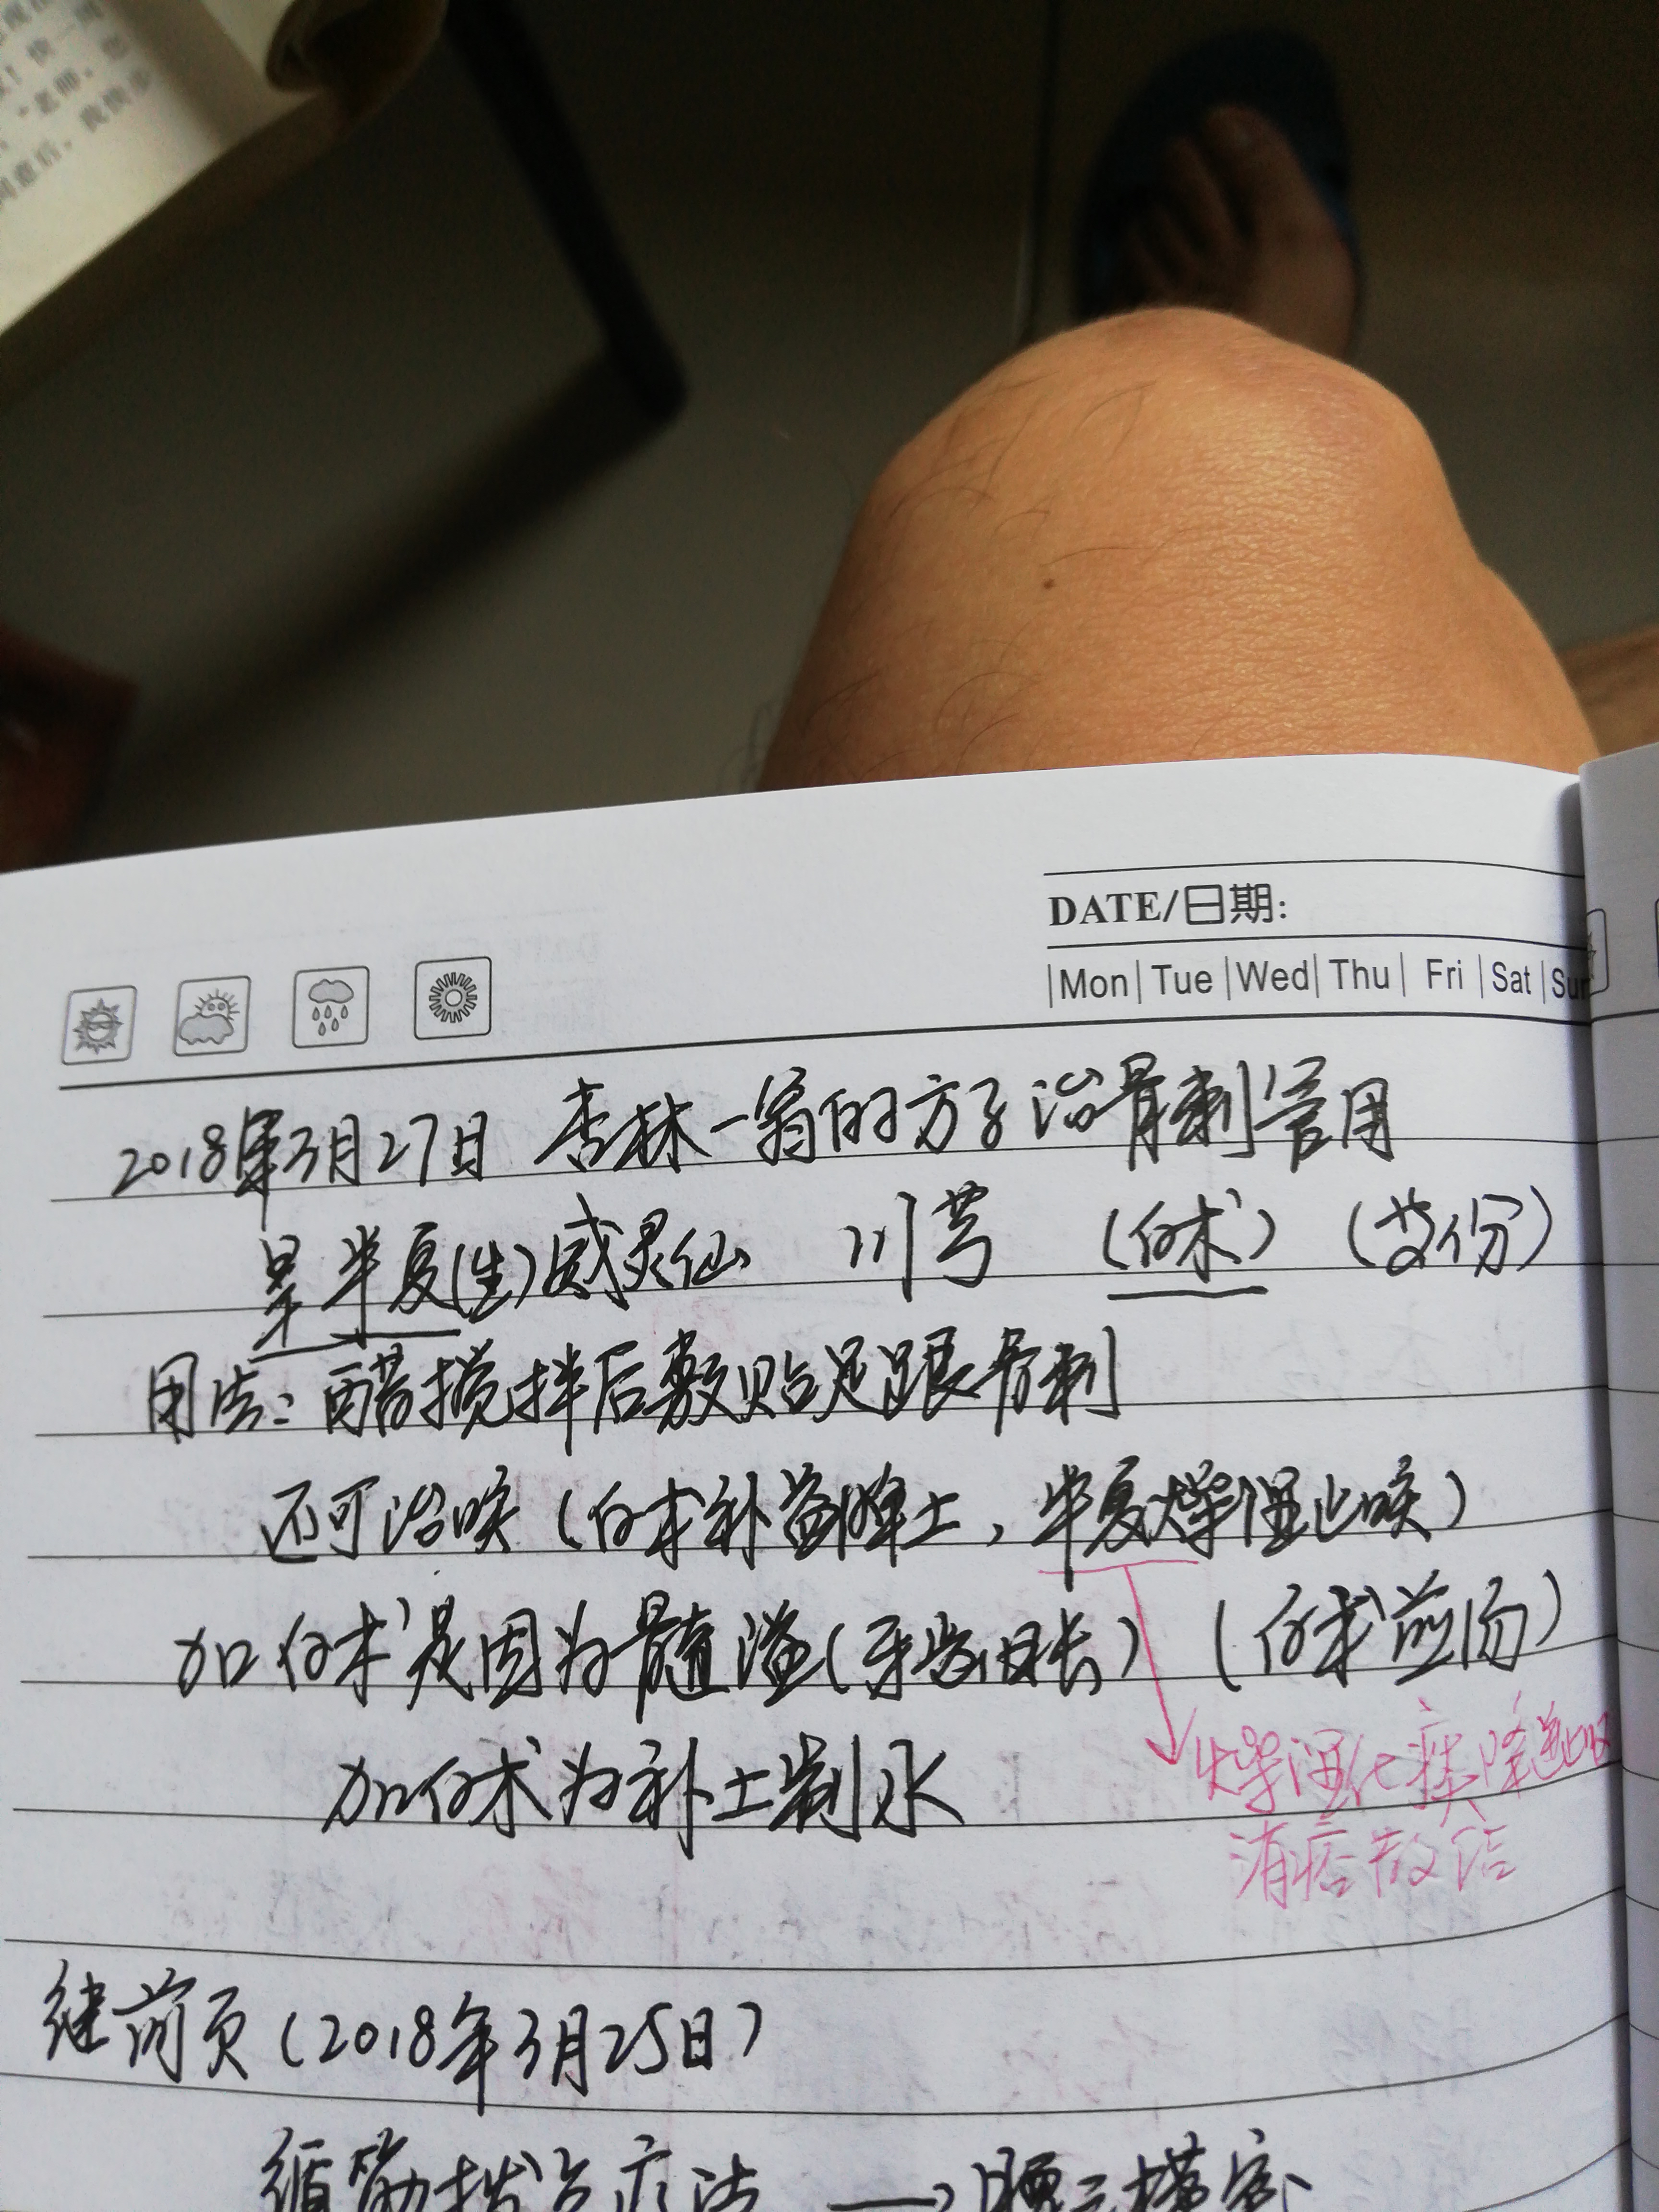 快一
老师
DATE/日期:
Mon Tue Wed Thu Fri Sat Sun
2018年3月27日 杏林一翁的方子治骨刺管用
旱半夏(生)威灵仙 川芎 (白术) (苍份)
用法:醋搅拌后敷贴足跟骨刺
还可治咳(白术补益脾土,半夏燥湿止咳)
加白术是因为髓溢(牙齿日长) (白术煎汤)
加白术为补土制水
燥湿化痰降逆止呕
消痞散结
继前页(2018年3月25日)
循筋拨点疗法 →腰三横突